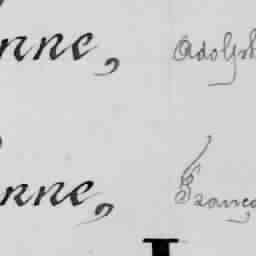 nne, Adolph
nne, Franç